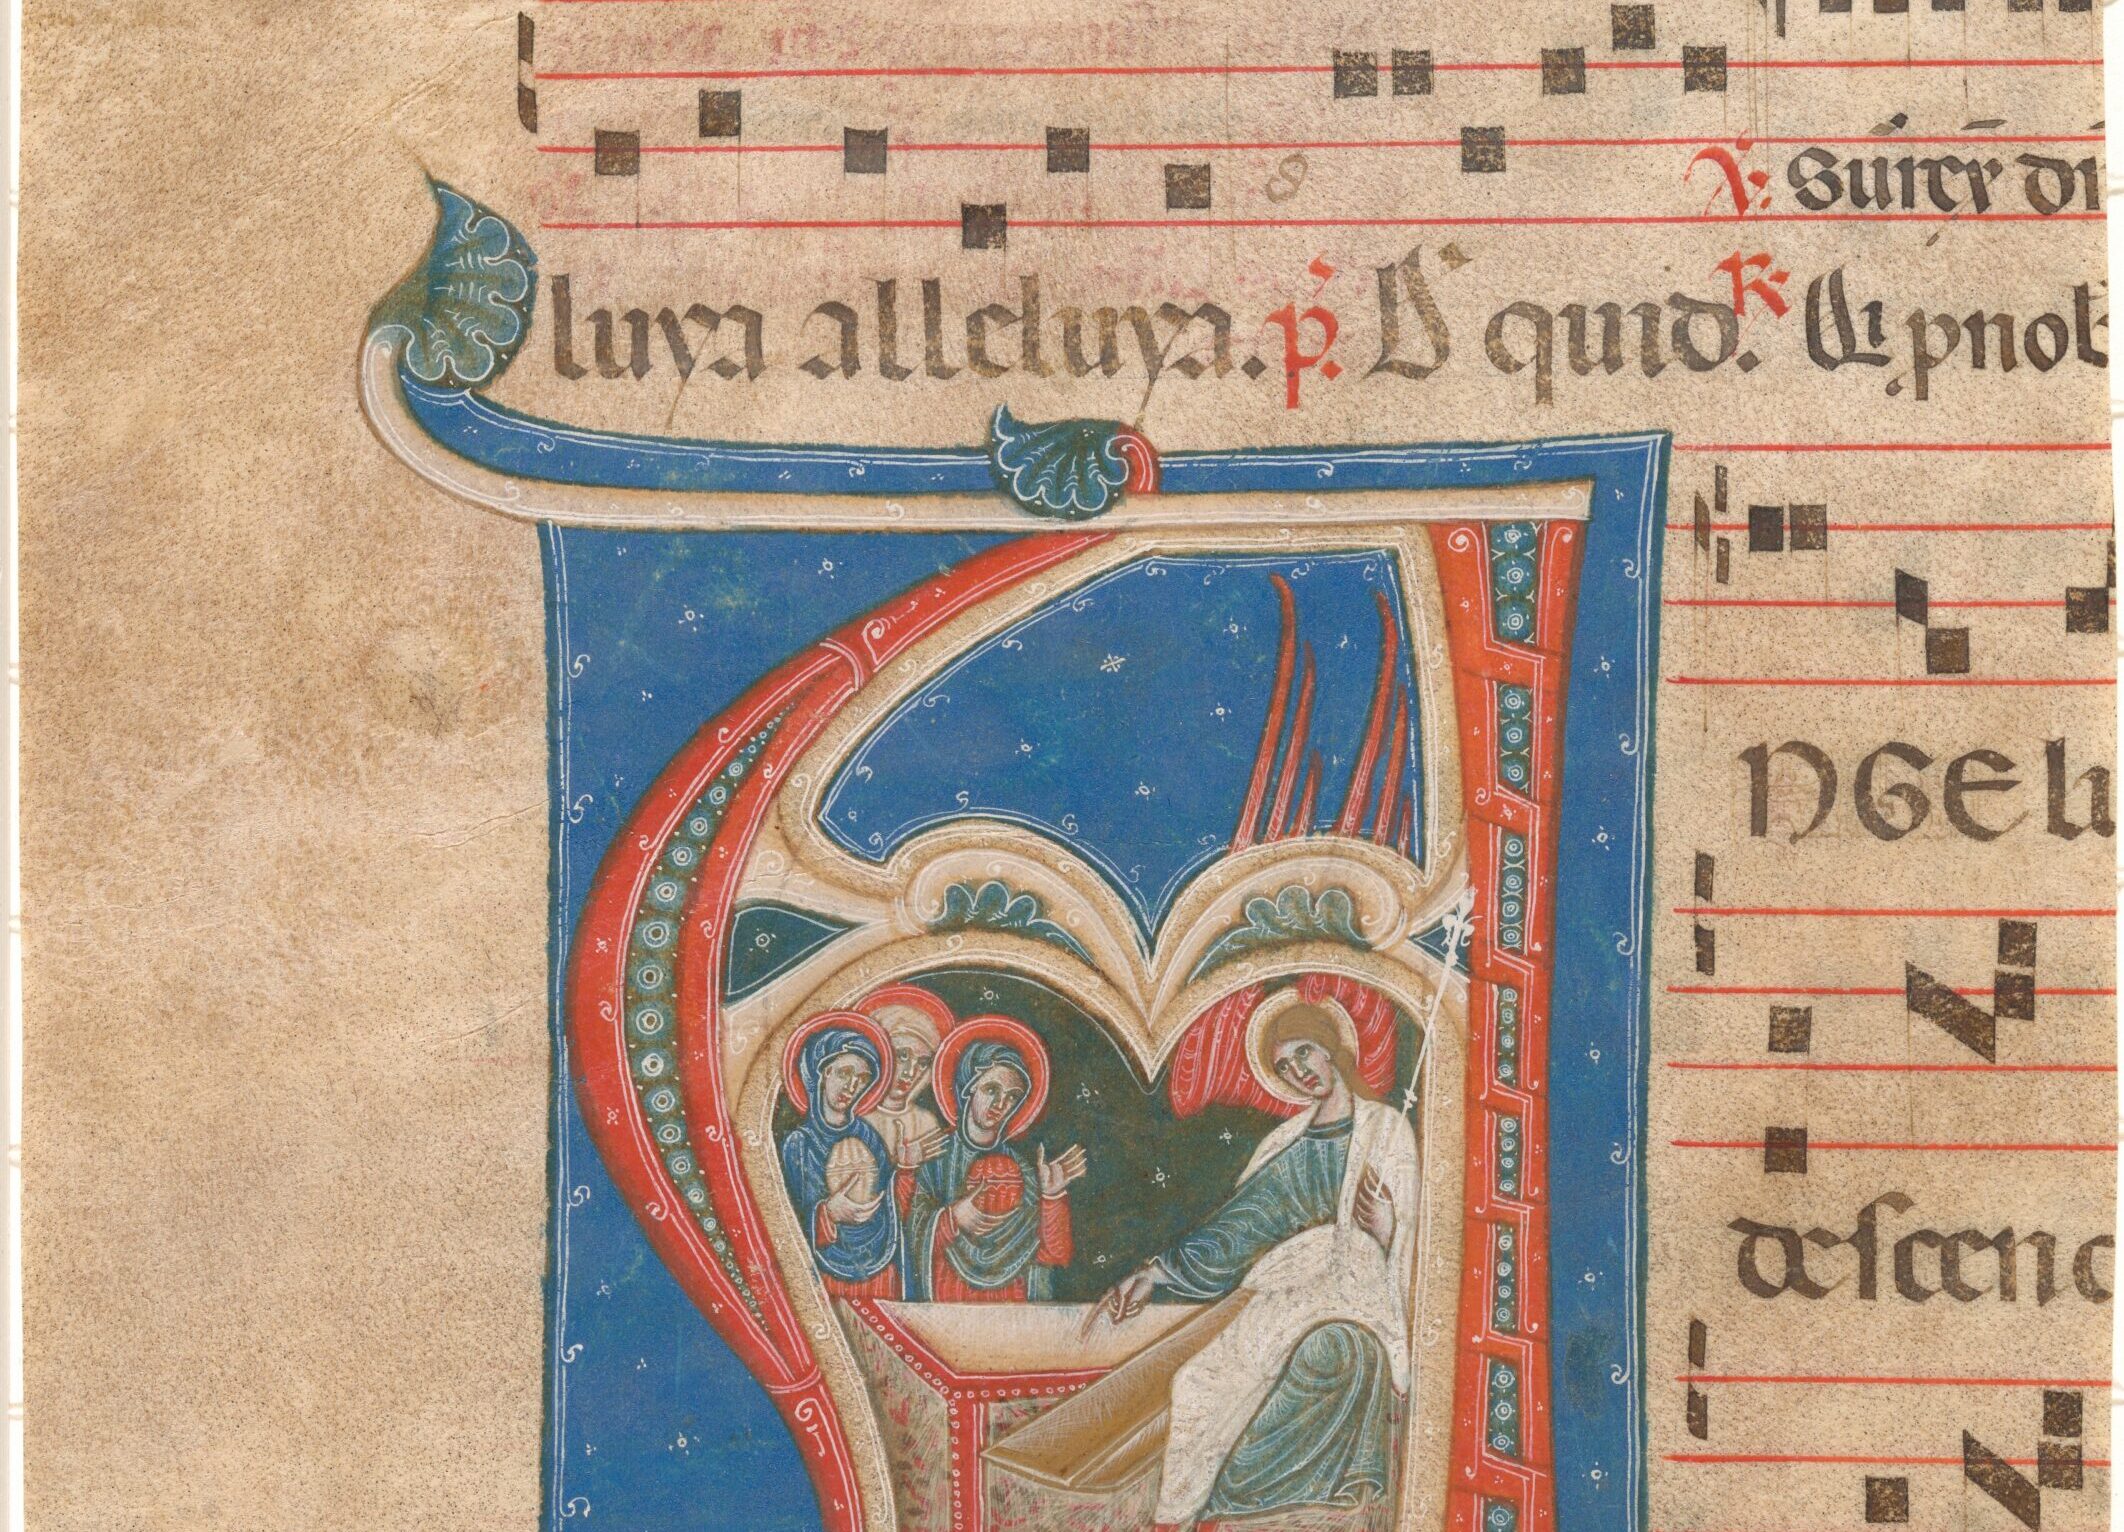 ℣. Surrex̄ dn
luya alleluya. p̄. Ds quid. ℟. Qi pnob
NGELu
descend